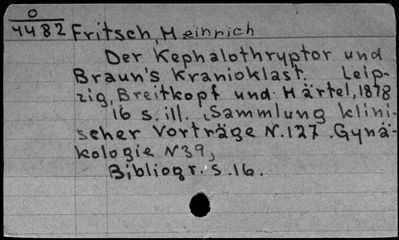 O
4482
Fritsch, Heinrich
Der Kephalothryptor und
Braun's Kranioklast. Leip-
zig, Breitkopf und Härtel, 1878
16 s. ill. (Sammlung klini-
scher Vorträge N. 127. Gynä-
kologie N39,
Bibliogr. s. 16.